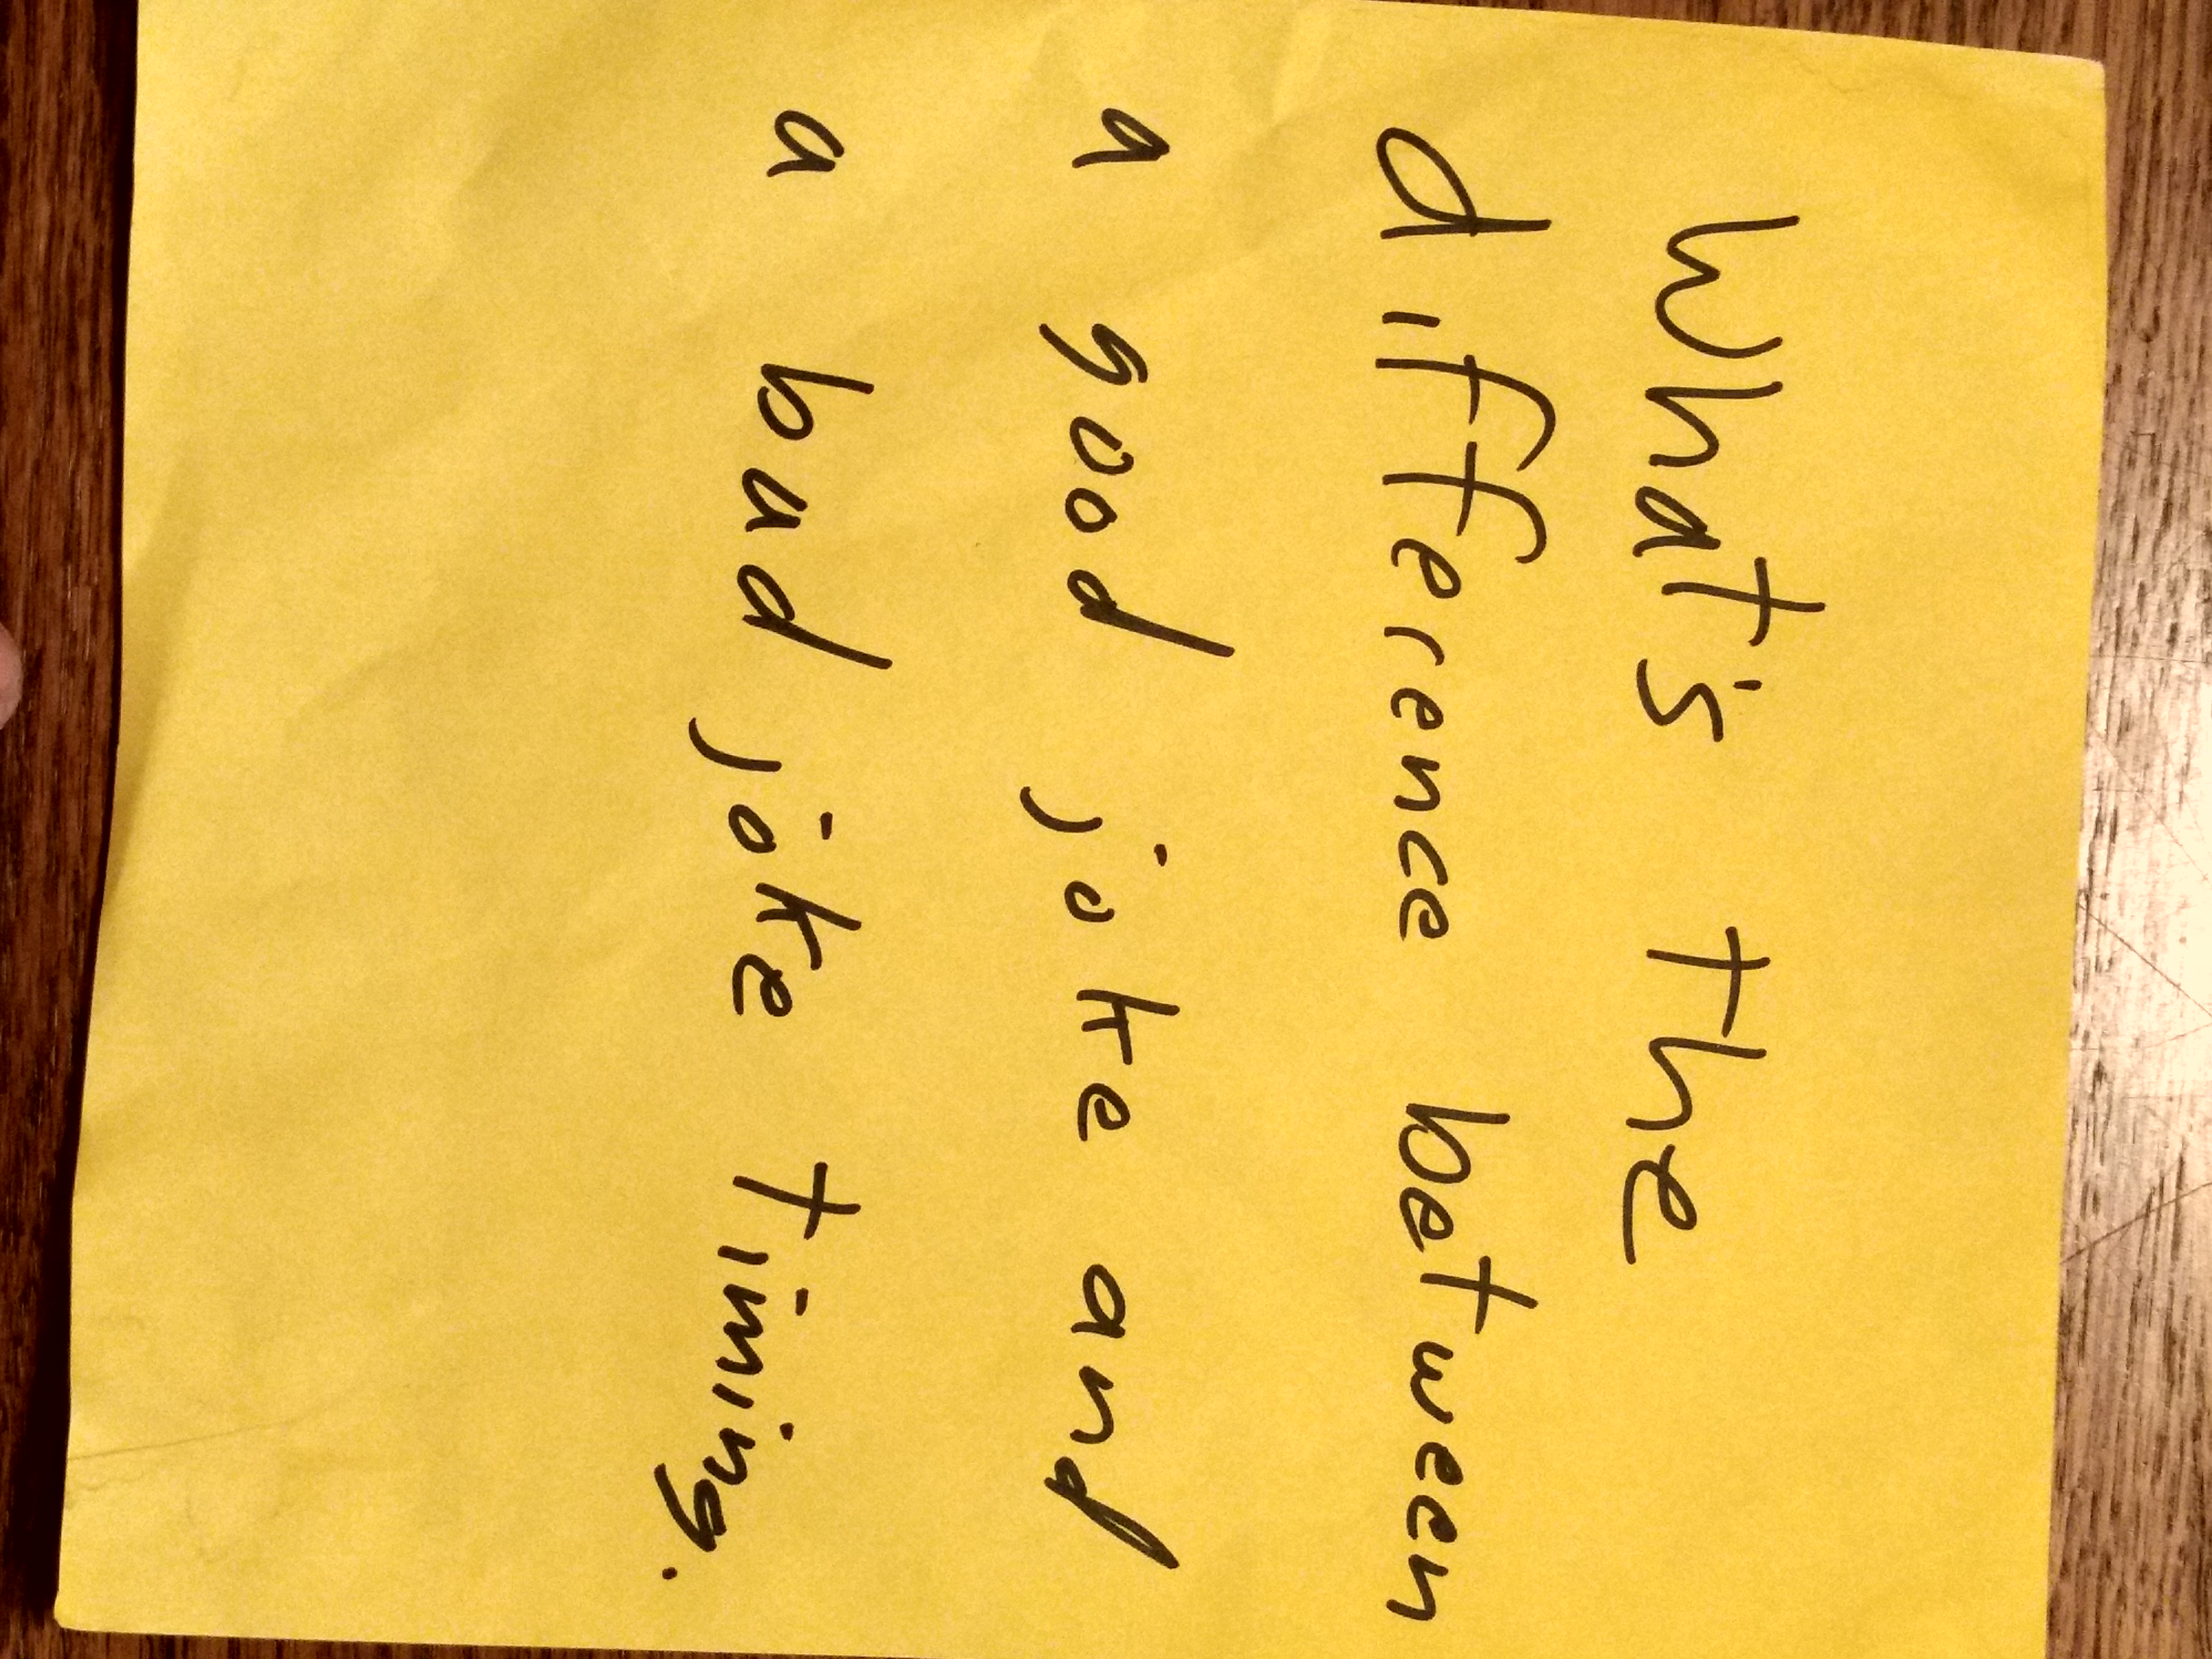 What's the
difference between
a good joke and
a bad joke timing.